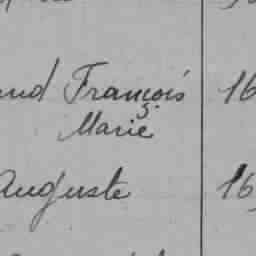 and François 16
Marie
Auguste 16